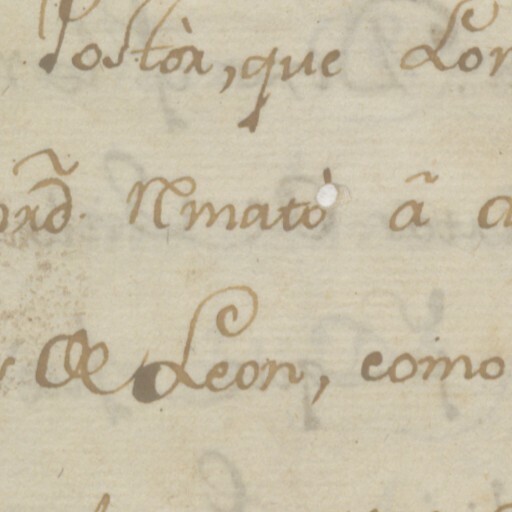 Postòr, que Lor
ord. Rmatò ã a
De Leon, como